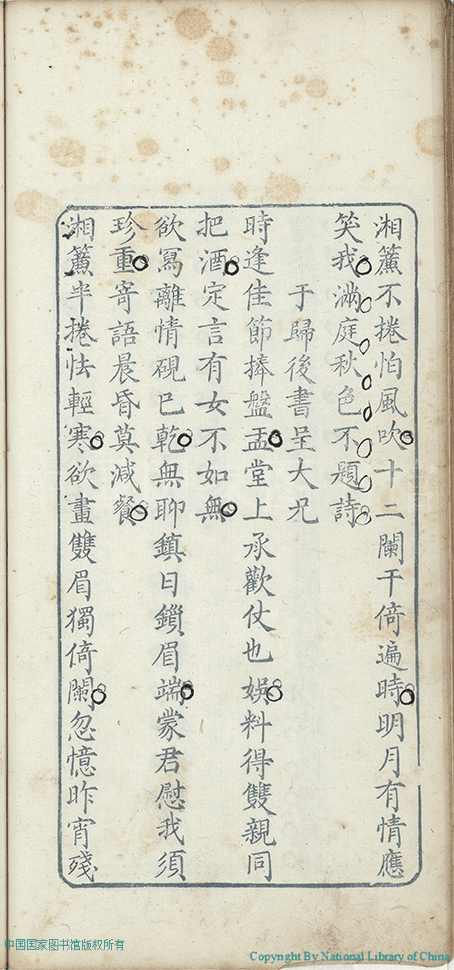 湘簾不捲怕風吹十二闌干倚遍時明月有情應
笑我滿庭秋色不題詩
于歸後書呈大兄
時逢佳節捧盤盂堂上承歡仗也娛料得雙親同
把酒定言有女不如無
欲寫離情硯已乾無聊鎮日鎖眉端蒙君慰我須
珍重寄語晨昏莫減餐
湘簾半捲怯輕寒欲畫雙眉獨倚闌忽憶昨宵殘
中国国家图书馆版权所有
Copyright By National Library of China